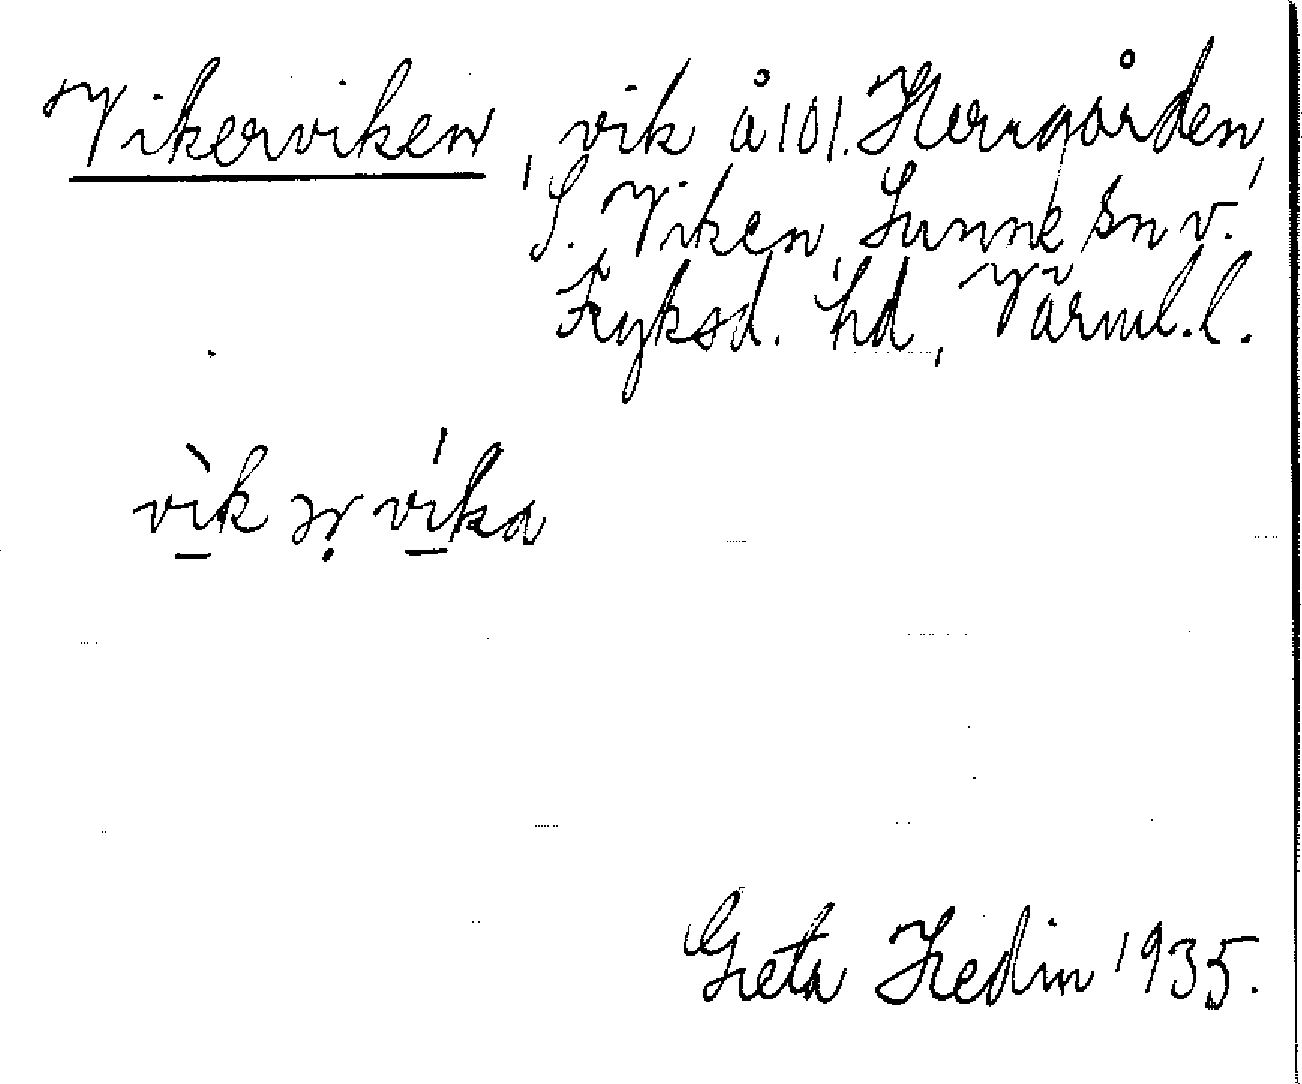 Vikerviken, vik å 101. Herrgården,
S. Viken, Sunne sn v.
Fryksd. hd, Värml. l.
vìk əṛ víka
Greta Hedin 1935.